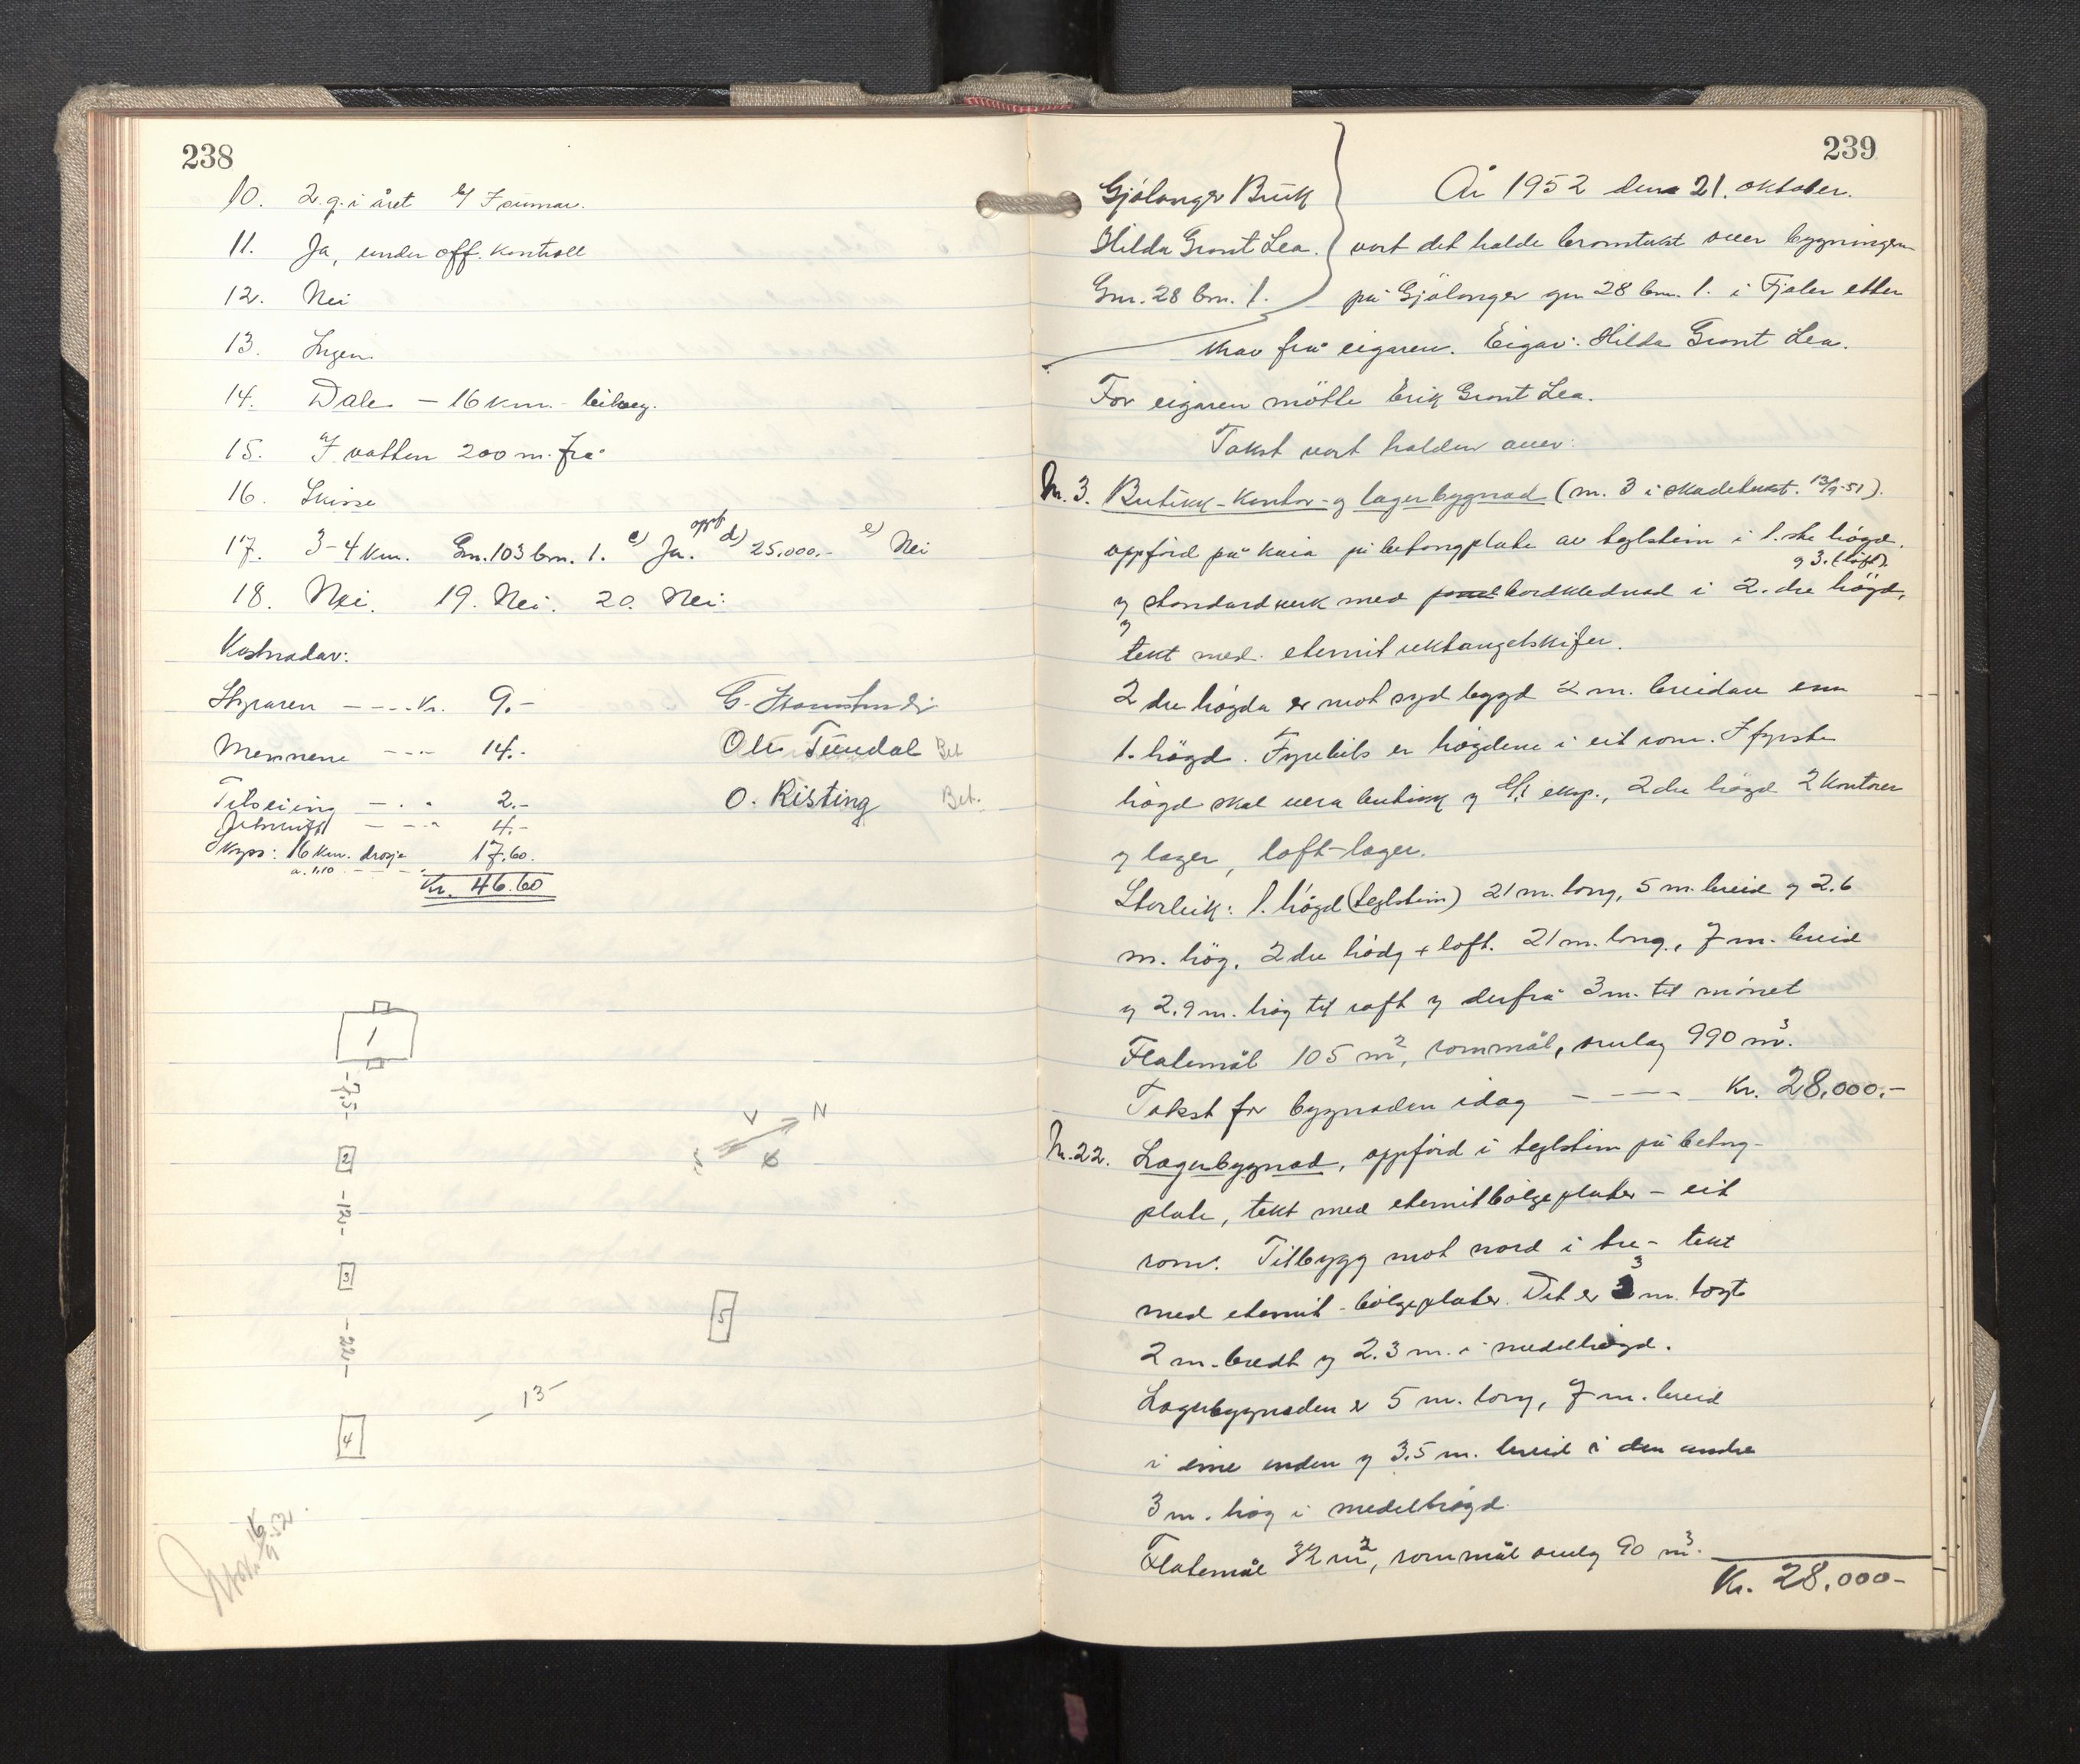 238
10. 2 g. i året
11. Ja, under off. kontroll
12. Nei
13. Ingen
14. Dale – 16 km. – bilveg.
15. I vatten 200 m. frå
16. Skisse
17. 3-4 km. Gn. 103 bn. 1. c) Ja. oppt d) 25.000.- e) Nei
18. Nei. 19. Nei. 20. Nei.
Kostnadar:
Styraren - - - - Kr. 9.-
Mennene - - - 14.-
Ole Tundal Bet
Tilseiing - . - 2.-
O. Risting Bet.
Utskrift - - - 4.-
Skyss: 16 km. drosje 17.60.
a. 1.10 - - - -
Kr. 46.60
1
- 7,5 -
V N
2
- 12 -
3
5
- 22 -
- 13 -
4
239
Gjølanger Bruk
Hilda Gront Lea.
Gnr. 28 bn. 1.
År 1952 den 21. oktober.
vart det halde branntakst over bygningen
på Gjølanger gn 28 bn. 1. i Fjaler etter
krav frå eigaren. Eigar: Hilda Gront Lea.
For eigaren møtte Erik Gront Lea.
Takst vart halden over:
Nr. 3. Butikk-kontor- og lagerbygnad (nr. 3 i skadetakst. 13/9-51).
oppførd på kaia på betongplate av teglstein i 1.ste høgd.
og 3. (loft).
og standardverk med bordklednad i 2. dre høgd,
og
tekt med eternit rektangelskifer.
2 dre høgda er mot syd bygd 2 m. breidare enn
1. høgd. Fyrebils er høgdene i eit rom. I fyrste
høgd skal vera butikk og eksp., 2 dre høgd 2 kontorer
og lager, loft-lager.
Storleik: 1. høgd (teglstein) 21 m. lang, 5 m. breid og 2.6
m. høg, 2 dre hødg + loft. 21 m. lang, 7 m. breid
og 2.9 m. høg til raft og derfrå 3 m. til mønet
Flatemål 105 m2, rommål, omlag 990 m3.
Takst for bygnaden idag - - - - Kr. 28.000.-
Nr. 22. Lagerbygnad, oppførd i teglstein på betong-
plate, tekt med eternitbølgeplater – eit
rom. Tilbygg mot nord i tre – tekt
med eternit-bølgeplater. Det er 3 m. langt
2 m. bredt og 2.3 m. i medelhøgd.
Lagerbygnaden er 5 m. lang, 7 m. breid
i eine enden og 3.5 m. breid i den andre
3 m. høg i medelhøgd.
Flatemål 32 m2, rommål omlag 90 m3.
Kr. 28.000-